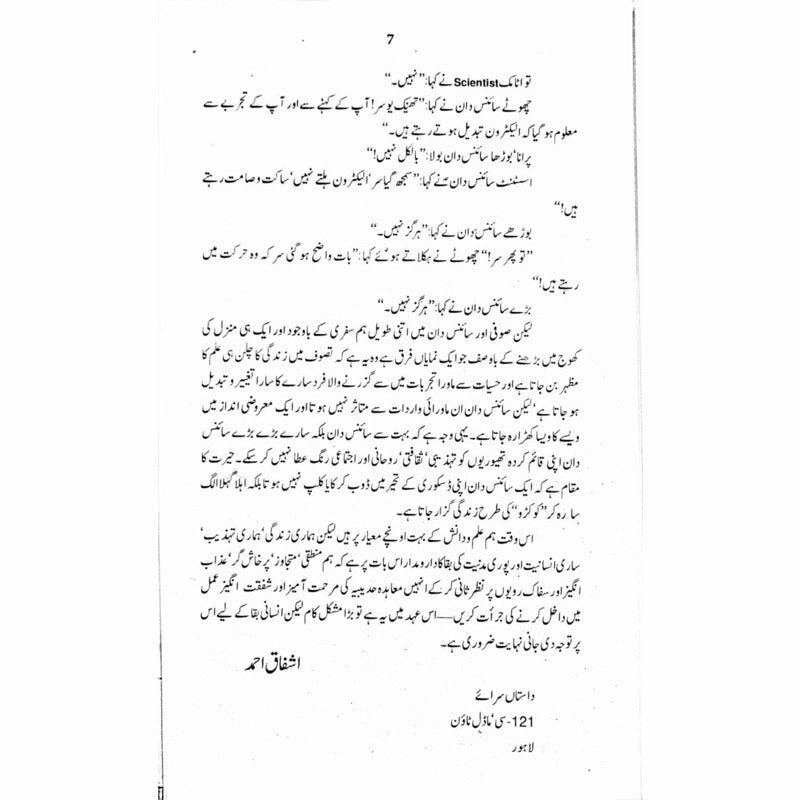 7
تو اٹامک Scientist نے کہا: ”نہیں۔“
چھوٹے سائنس دان نے کہا: ”تھینک یو سر! آپ کے کہنے سے اور آپ کے تجربے سے
معلوم ہو گیا کہ الیکٹرون تبدیل ہوتے رہتے ہیں۔“
پرانا‘ بوڑھا سائنس دان بولا: ”بالکل نہیں!“
اسسٹنٹ سائنس دان نے کہا: ”سمجھ گیا سر‘ الیکٹرون ہلتے نہیں‘ ساکت و صامت رہتے
ہیں!“
بوڑھے سائنس دان نے کہا: ”ہرگز نہیں۔“
”تو پھر سر!“ چھوٹے نے ہکلاتے ہوئے کہا: ”بات واضح ہو گئی سر کہ وہ حرکت میں
رہتے ہیں!“
بڑے سائنس دان نے کہا: ”ہرگز نہیں۔“
لیکن صوفی اور سائنس دان میں اتنی طویل ہم سفری کے باوجود اور ایک ہی منزل کی
کھوج میں بڑھنے کے باوصف جو ایک نمایاں فرق ہے وہ یہ ہے کہ تصوف میں زندگی کا چلن ہی علم کا
مظہر بن جاتا ہے اور حسیات سے ماورا تجربات میں سے گزرنے والا فرد سارے کا سارا تغییر و تبدیل
ہو جاتا ہے‘ لیکن سائنس دان ان ماورائی واردات سے متاثر نہیں ہوتا اور ایک معروضی انداز میں
ویسے کا ویسا کھڑا رہ جاتا ہے۔ یہی وجہ ہے کہ بہت سے سائنس دان بلکہ سارے بڑے بڑے سائنس
دان اپنی قائم کردہ تھیوریوں کو تہذیبی‘ ثقافتی‘ روحانی اور اجتماعی رنگ عطا نہیں کر سکے۔ حیرت کا
مقام ہے کہ ایک سائنس دان اپنی ڈسکوری کے تحیر میں ڈوب کر کایا کلپ نہیں ہوتا بلکہ اہلا گہلا الگ
سا رہ کر ”کوکڑو“ کی طرح زندگی گزار جاتا ہے۔
اس وقت ہم علم و دانش کے بہت اونچے معیار پر ہیں لیکن ہماری زندگی‘ ہماری تہذیب‘
ساری انسانیت اور پوری مدنیت کی بقا کا دارومدار اس بات پر ہے کہ ہم منطقی‘ متجاوز‘ پرخاش گر‘ عذاب
انگیز اور سفاک رویوں پر نظر ثانی کر کے انہیں معاہدہ حدیبیہ کی مرحمت آمیز اور شفقت انگیز عمل
میں داخل کرنے کی جرأت کریں — اس عہد میں یہ ہے تو بڑا مشکل کام لیکن انسانی بقا کے لیے اس
پر توجہ دی جانی نہایت ضروری ہے۔
اشفاق احمد
داستاں سرائے
121-سی‘ ماڈل ٹاؤن
لاہور